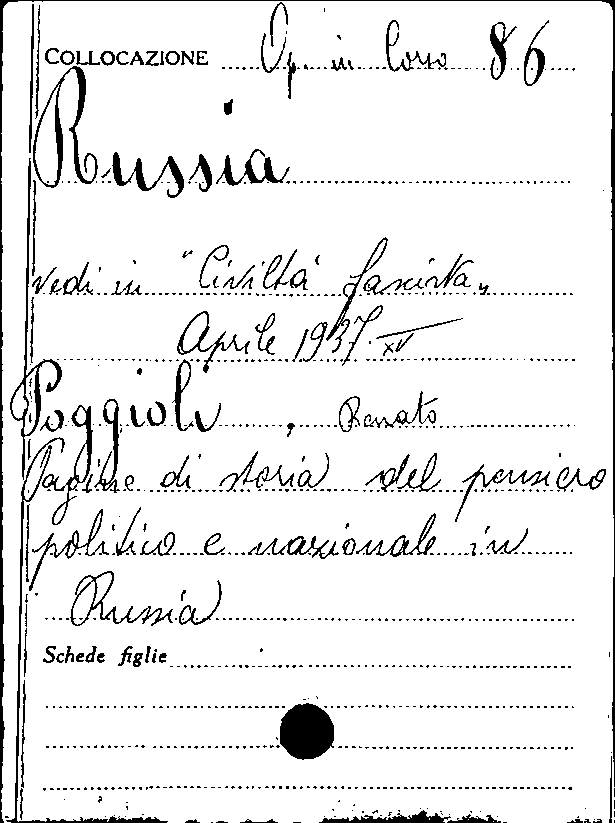 COLLOCAZIONE Op. in Corso 86
Russia
vedi in "Civiltà fascista„
Aprile 1937. XV
Poggioli, Renato
Pagine di storia del pensiero
politico e nazionale in
Russia
Schede figlie